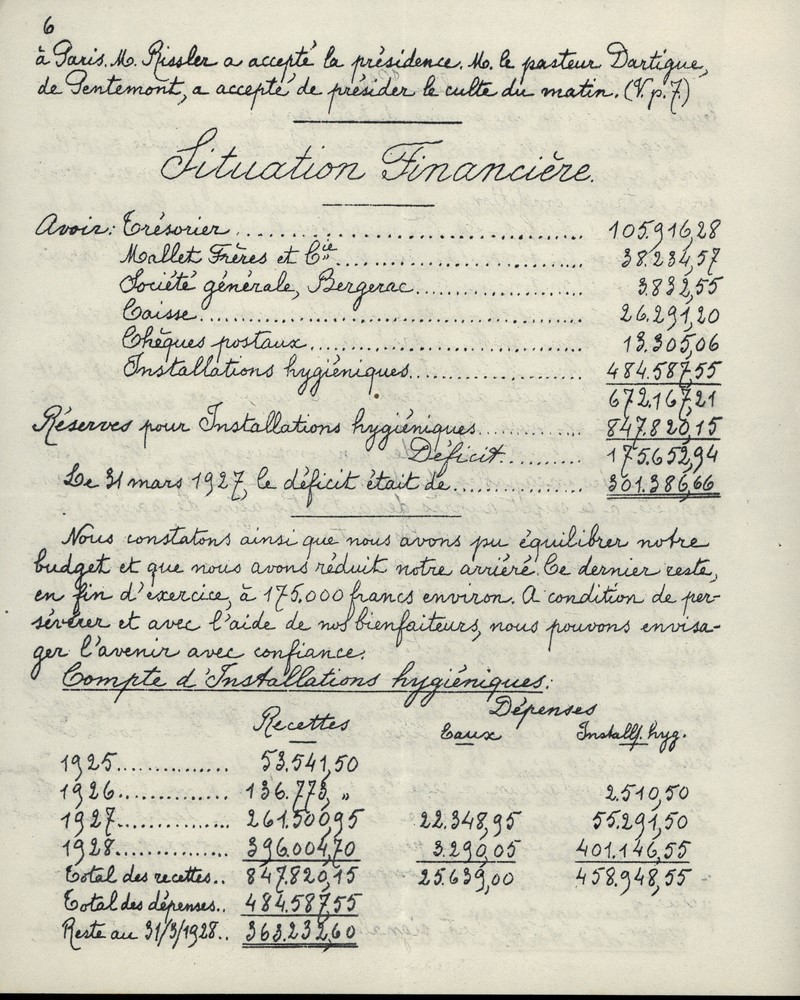 6
à Paris. M. Rissler a accepté la présidence. M. le pasteur Dartigue,
de Pentemont, a accepté de présider le culte du matin. (V. p. 7.)
Situation Financière.
Avoir: Trésorier........................................ 105.916,28
Mallet Frères et Cie............................ 38.234,57
Société générale, Bergerac.................. 3.832,55
Caisse............................................ 26.291,20
Chèques postaux............................. 13.305,06
Installations hygiéniques.................. 484.587,55
672.167,21
Réserves pour Installations hygiéniques............ 847.820,15
Déficit......... 175.652,94
Le 31 mars 1927, le déficit était de................ 301.386,66
Nous constatons ainsi que nous avons pu équilibrer notre
budget et que nous avons réduit notre arriéré. Ce dernier reste,
en fin d'exercice, à 175.000 francs environ. A condition de per-
sévérer et avec l'aide de nos bienfaiteurs, nous pouvons envisa-
ger l'avenir avec confiance.
Compte d'Installations hygiéniques:
Recettes Dépenses
Eaux Installs. hyg.
1925............... 53.541,50
1926............... 136.773, „ 2.510,50
1927............... 261.500,95 22.348,95 55.291,50
1928............... 396.004,70 3.290,05 401.146,55
Total des recettes.. 847.820,15 25.639,00 458.948,55
Total des dépenses.. 484.587,55
Reste au 31/3/1928.. 363.232,60